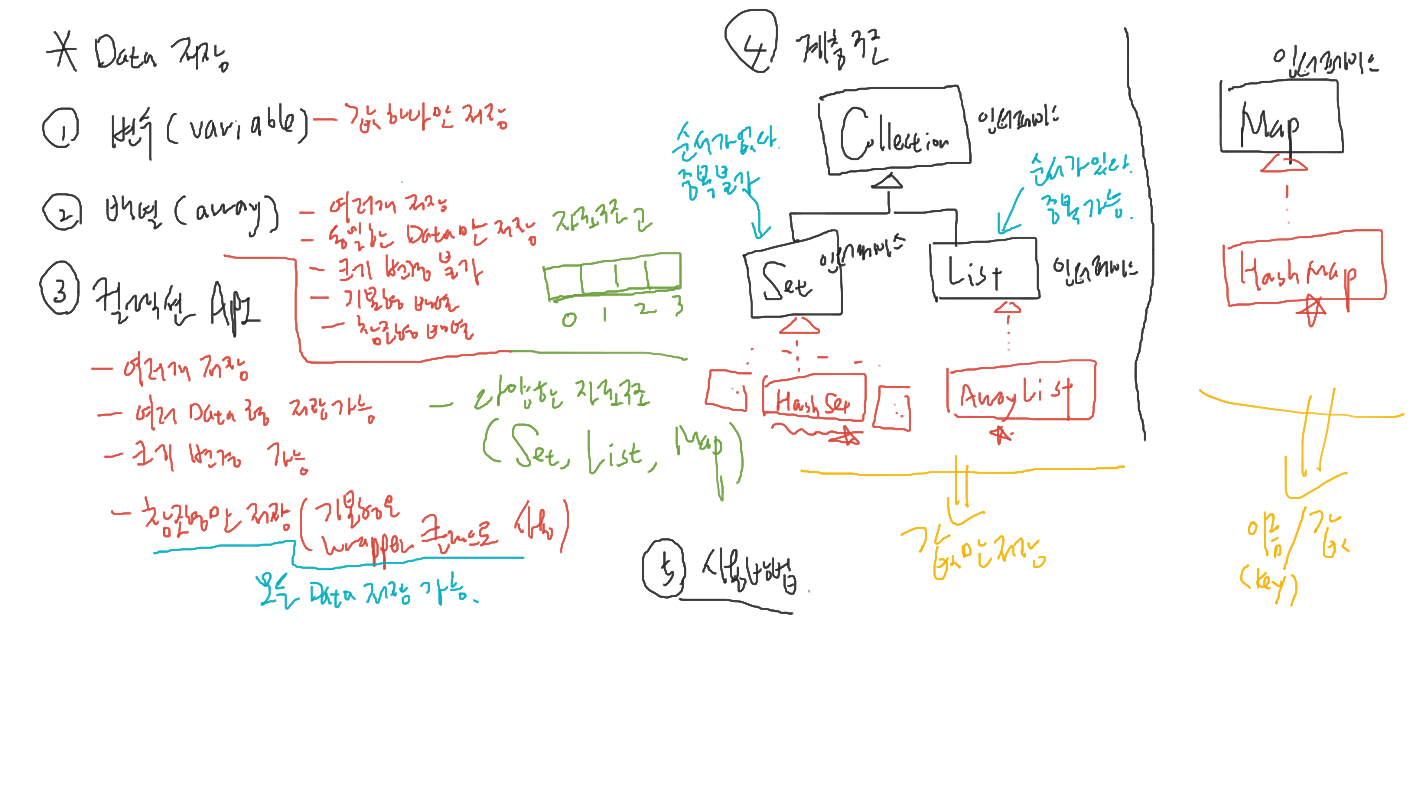 * Data 저장
① 변수 (variable) - 값 하나만 저장
② 배열 (array)
- 여러개 저장
- 동일한 Data만 저장
- 크기 변경 불가
- 기본형 배열
- 참조형 배열
자료구조
0 1 2 3
③ 컬렉션 API
- 여러개 저장
- 여러 Data형 저장 가능
- 크기 변경 가능
- 참조형만 저장 (기본형은
wrapper 클래스로 사용)
모든 Data 저장 가능.
- 다양한 자료구조
(Set, List, Map)
④ 계층구조
Collection
인터페이스
순서가 없다.
중복 불가
순서가 있다.
중복 가능.
Set
인터페이스
List
인터페이스
HashSet
ArrayList
값만 저장
인터페이스
Map
HashMap
이름 / 값
(key)
⑤ 사용방법